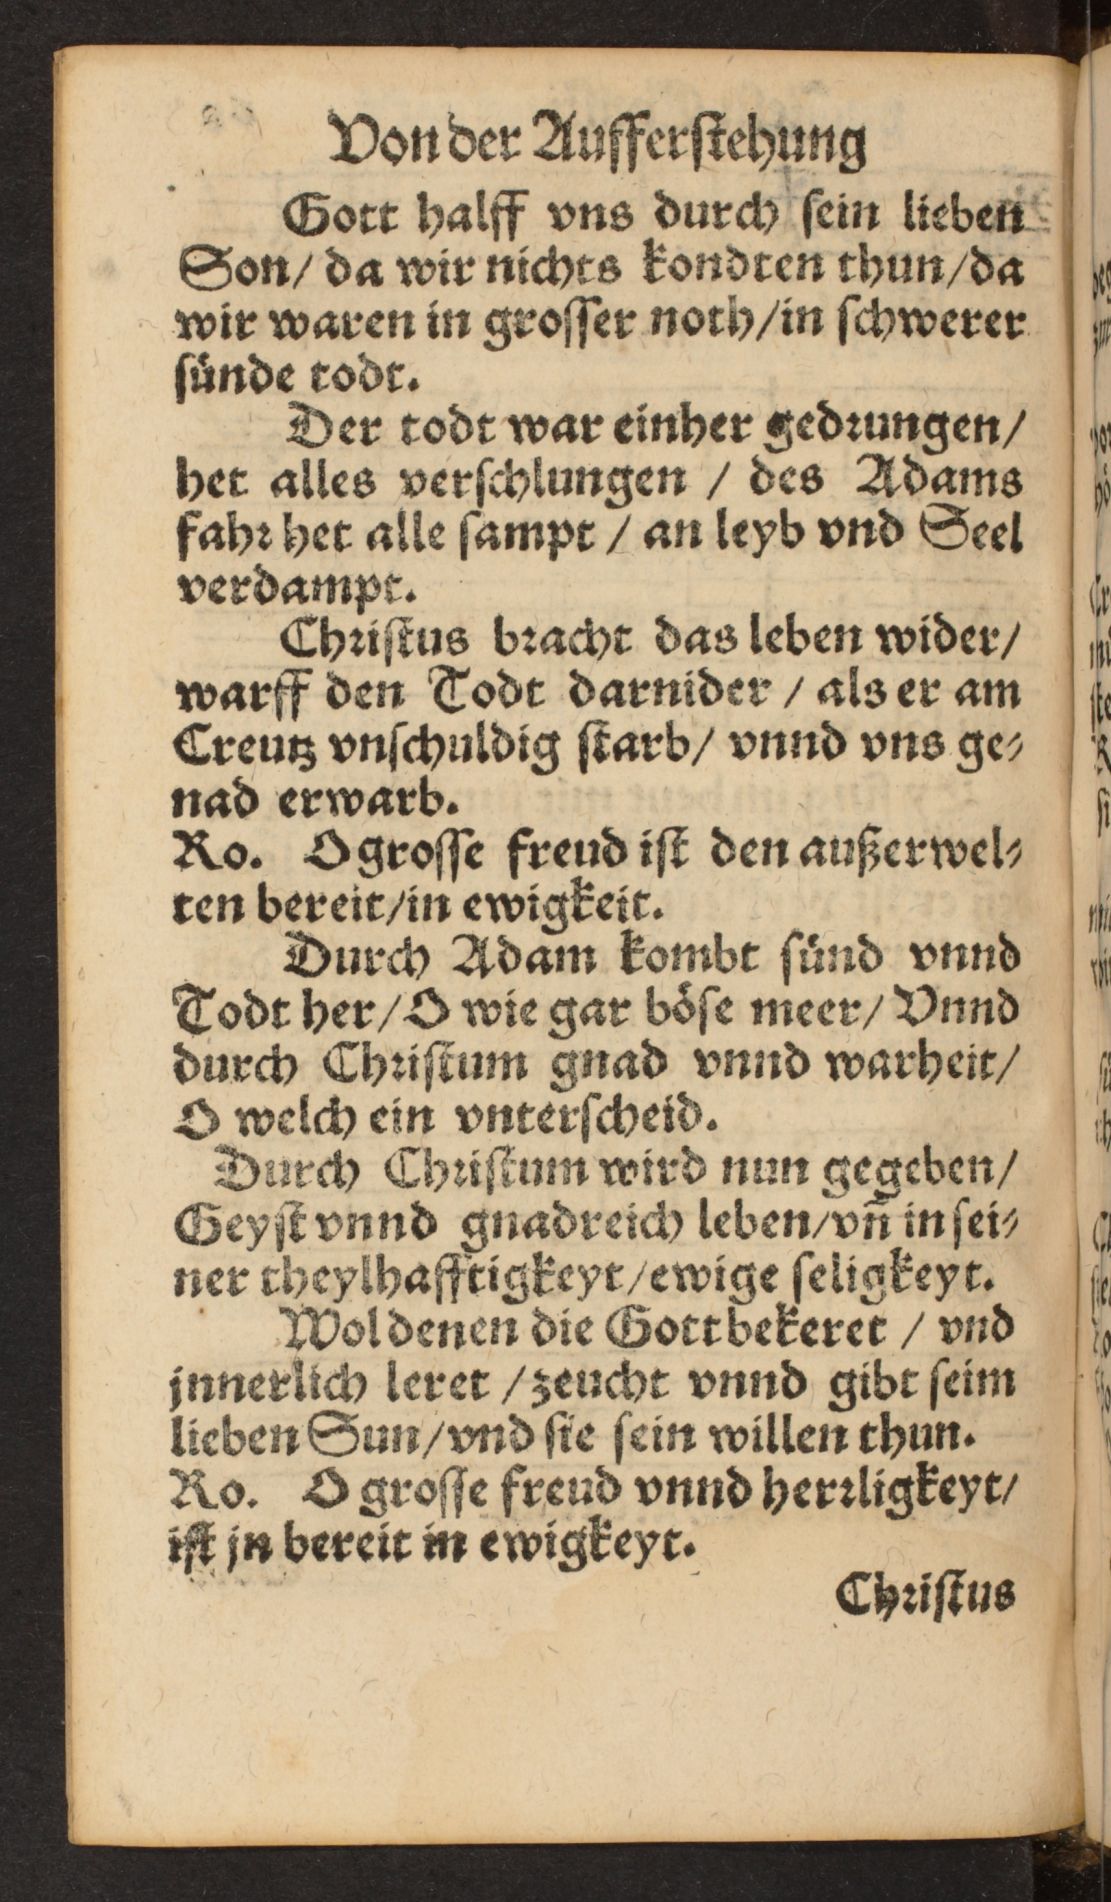 Von der Aufferſtehung
Gott halff vns durch ſein lieben
Son/ da wir nichts kondten thun/da
wir waren in groſſer noth/in ſchwerer
ſünde todt.
Der todt war einher gedꝛungen/
het alles verſchlungen / des Adams
fahꝛ het alle ſampt / an leyb vnd Seel
verdampt.
Chꝛiſtus bꝛacht das leben wider/
warff den Todt darnider / als er am
Creutz vnſchuldig ſtarb/ vnnd vns ge⸗
nad erwarb.
Ro. O groſſe freud iſt den außerwel⸗
ten bereit/in ewigkeit.
Durch Adam kombt ſünd vnnd
Todt her/ O wie gar böſe meer/ Vnnd
durch Chꝛiſtum gnad vnnd warheit/
O welch ein vnterſcheid.
Durch Chꝛiſtum wird nun gegeben/
Geyſt vnnd gnadreich leben/vn̄ in ſei⸗
ner theylhafftigkeyt/ewige ſeligkeyt.
Wol denen die Gott bekeret / vnd
jnnerlich leret / zeucht vnnd gibt ſeim
lieben Sun/vnd ſie ſein willen thun.
Ro. O groſſe freud vnnd herꝛligkeyt/
iſt jn bereit in ewigkeyt.
Chꝛiſtus